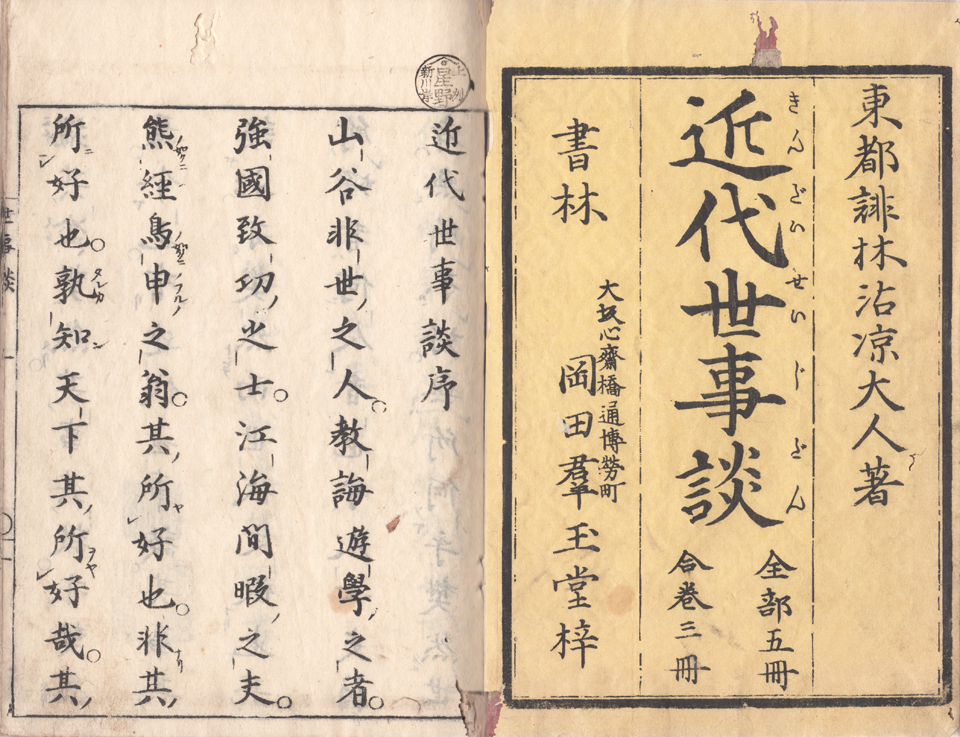 東都誹林沾凉大人著
近代世事談
きんだいせいじだん
全部五冊
合巻三冊
大坂心齋橋通博勞町
書林 岡田羣玉堂梓
近代世事談序
山谷非世之人教誨遊學之者
強國致功之士江海間暇之夫
熊經鳥申之翁其所好也非其
所好也孰知天下其所好哉其
世事談
星野